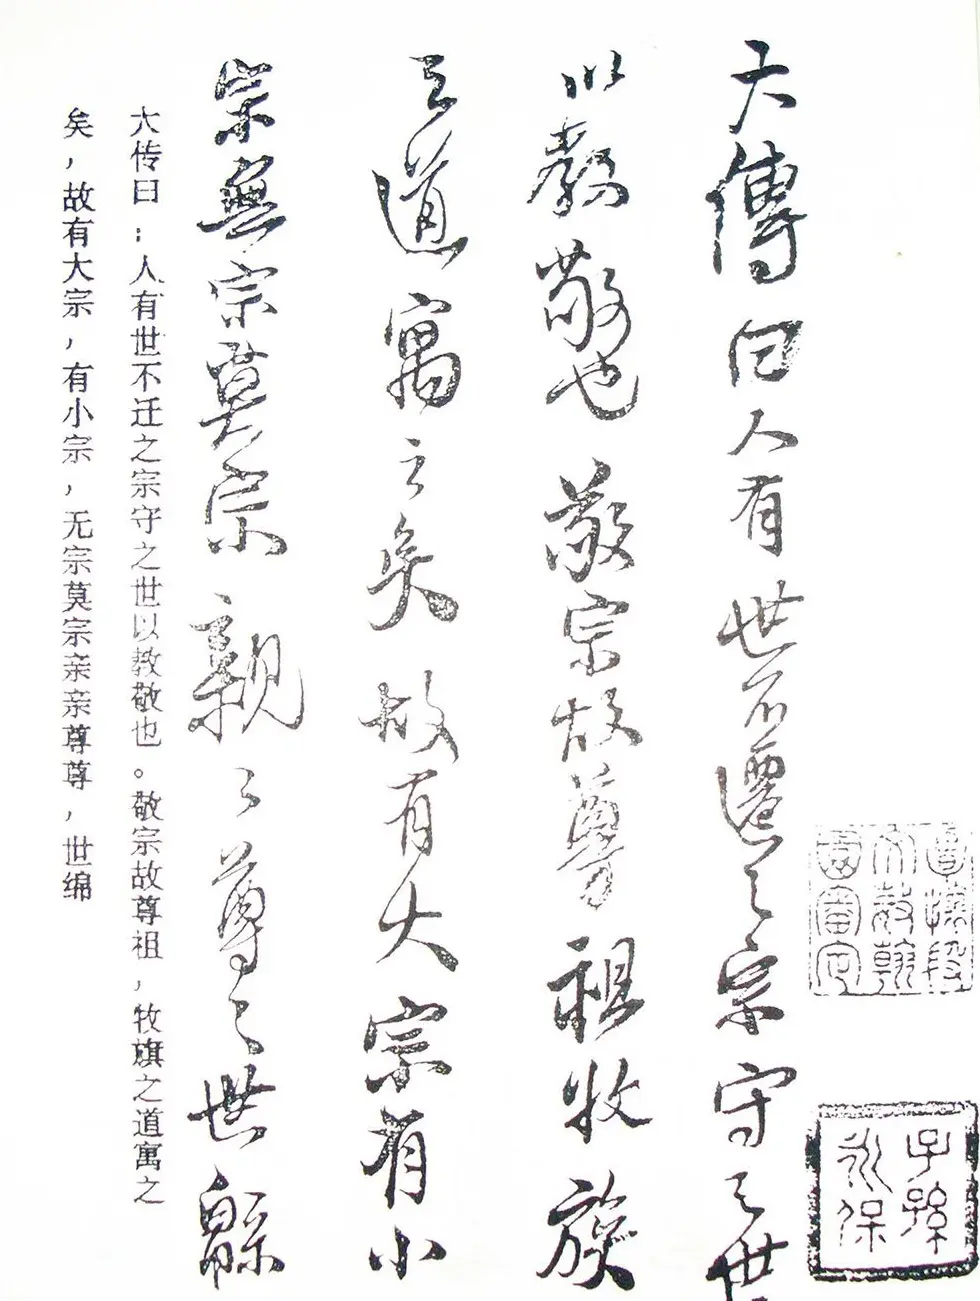 大傳曰人有世不遷之宗守之世
以教敬也敬宗故尊祖牧族
之道寓之矣故有大宗有小
宗無宗莫宗親々尊々世緜
大传曰：人有世不迁之宗守之世以教敬也。敬宗故尊祖，牧旗之道寓之
矣，故有大宗，有小宗，无宗莫宗亲亲尊尊，世绵
子孫
永保